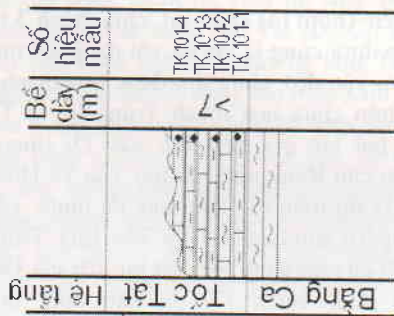 Số
hiệu
mẫu
TK.101-4
TK.101-3
TK.101-2
TK.101-1
Bề
dày
(m)
>7
Hệ tầng
Tốc Tát
Bằng Ca